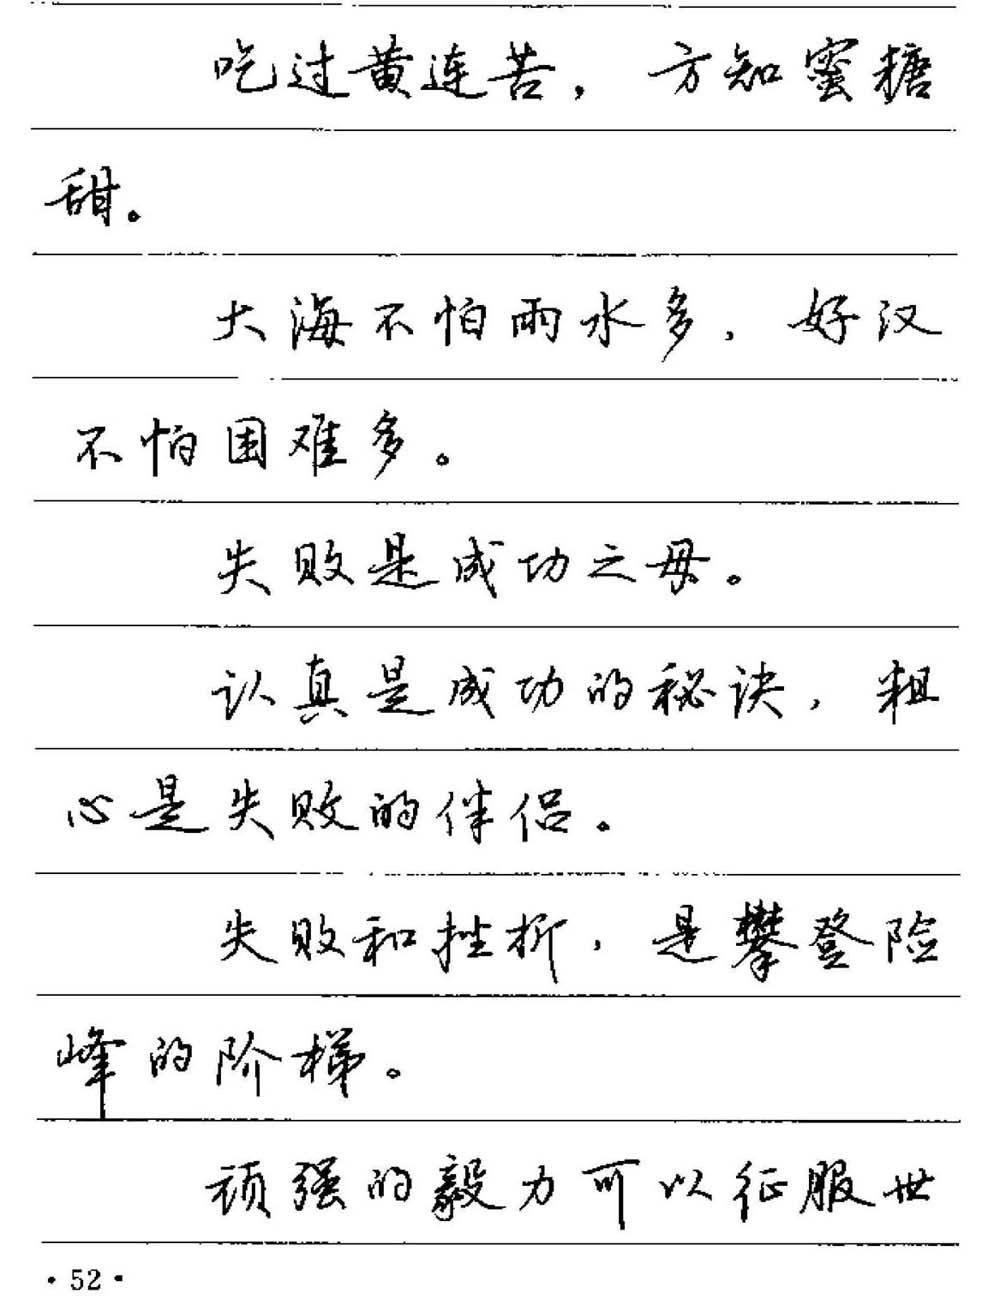 吃过黄连苦，方知蜜糖
甜。
大海不怕雨水多，好汉
不怕困难多。
失败是成功之母。
认真是成功的秘诀，粗
心是失败的伴侣。
失败和挫折，是攀登险
峰的阶梯。
顽强的毅力可以征服世
·52·